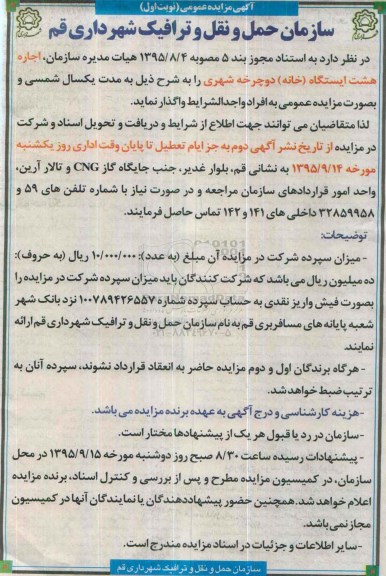 آگهی مزایده عمومی (نوبت اول)
سازمان حمل و نقل و ترافیک شهرداری قم
در نظر دارد به استناد مجوز بند ۵ مصوبه ۱۳۹۵/۸/۴ هیات مدیره سازمان، اجاره
هشت ایستگاه (خانه) دوچرخه شهری را به شرح ذیل به مدت یکسال شمسی و
بصورت مزایده عمومی به افراد واجدالشرایط واگذار نماید.
لذا متقاضیان می توانند جهت اطلاع از شرایط و دریافت و تحویل اسناد و شرکت
در مزایده از تاریخ نشر آگهی دوم به جز ایام تعطیل تا پایان وقت اداری روز یکشنبه
مورخه ۱۳۹۵/۹/۱۴ به نشانی قم، بلوار غدیر، جنب جایگاه گاز CNG و تالار آرین،
واحد امور قراردادهای سازمان مراجعه و در صورت نیاز با شماره تلفن های ۵۹ و
۳۲۸۵۹۹۵۸ داخلی های ۱۴۱ و ۱۴۲ تماس حاصل فرمایند.
توضیحات:
- میزان سپرده شرکت در مزایده آن مبلغ (به عدد): ۱۰/۰۰۰/۰۰۰ ریال (به حروف):
ده میلیون ریال می باشد که شرکت کنندگان باید میزان سپرده شرکت در مزایده را
بصورت فیش واریز نقدی به حساب سپرده شماره ۱۰۰۷۸۹۴۲۶۵۵۷ نزد بانک شهر
شعبه پایانه های مسافربری قم به نام سازمان حمل و نقل و ترافیک شهرداری قم ارائه
نمایند.
- هرگاه برندگان اول و دوم مزایده حاضر به انعقاد قرارداد نشوند، سپرده آنان به
ترتیب ضبط خواهد شد.
-هزینه کارشناسی و درج آگهی به عهده برنده مزایده می باشد.
-سازمان در رد یا قبول هر یک از پیشنهادها مختار است.
- پیشنهادات رسیده ساعت ۸/۳۰ صبح روز دوشنبه مورخه ۱۳۹۵/۹/۱۵ در محل
سازمان، در کمیسیون مزایده مطرح و پس از بررسی و کنترل اسناد، برنده مزایده
اعلام خواهد شد. همچنین حضور پیشنهاددهندگان یا نمایندگان آنها در کمیسیون
مجاز نمی باشد.
-سایر اطلاعات و جزئیات در اسناد مزایده مندرج است.
سازمان حمل و نقل و ترافیک شهرداری قم